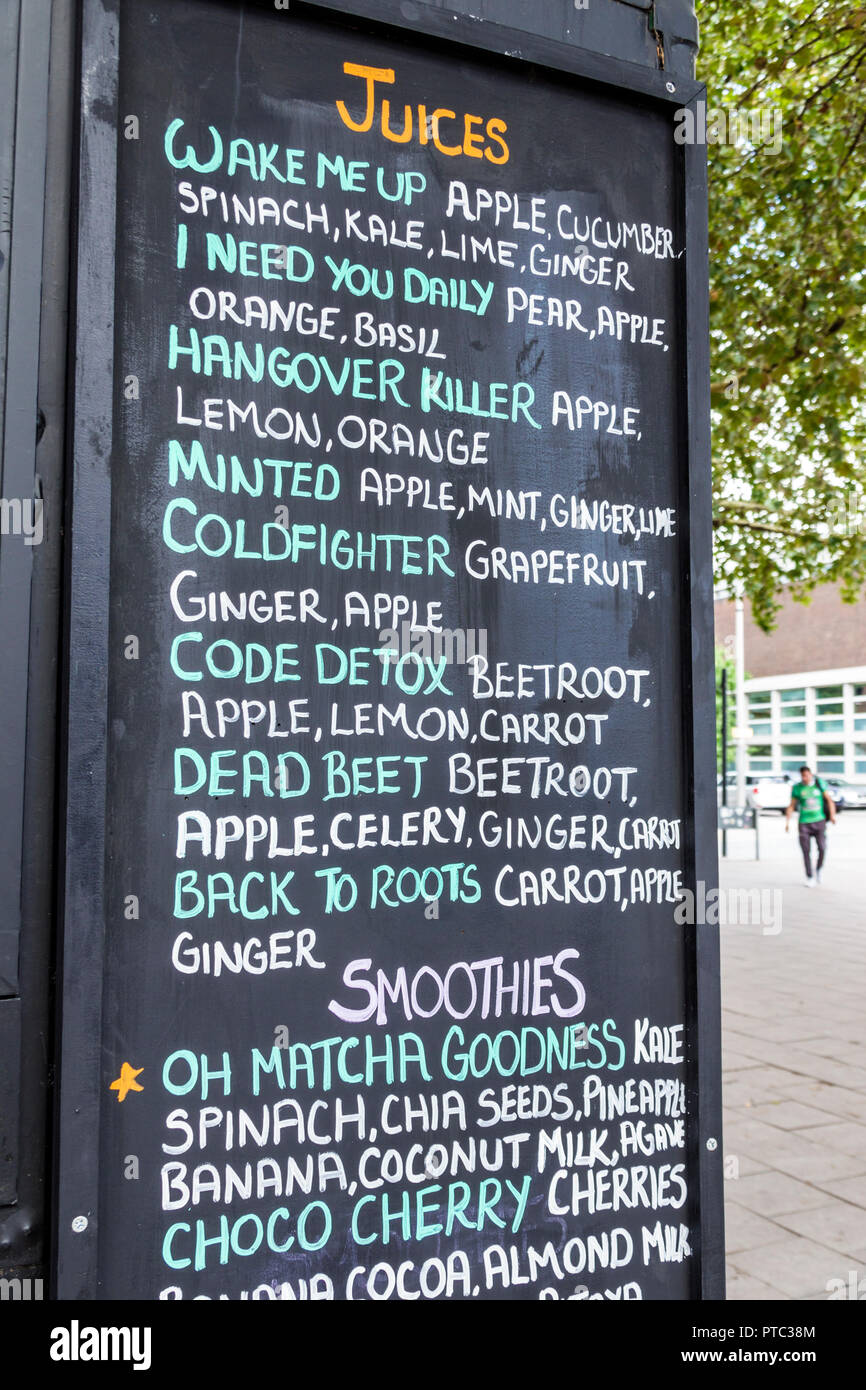 JUICES
WAKE ME UP APPLE, CUCUMBER,
SPINACH, KALE, LIME, GINGER
I NEED YOU DAILY PEAR, APPLE,
ORANGE, BASIL
HANGOVER KILLER APPLE,
LEMON, ORANGE
MINTED APPLE, MINT, GINGER, LIME
COLDFIGHTER GRAPEFRUIT,
GINGER, APPLE
CODE DETOX BEETROOT,
APPLE, LEMON, CARROT
DEAD BEET BEETROOT,
APPLE, CELERY, GINGER, CARROT
BACK TO ROOTS CARROT, APPLE
GINGER
SMOOTHIES
OH MATCHA GOODNESS KALE
SPINACH, CHIA SEEDS, PINEAPPLE
BANANA, COCONUT MILK, AGAVE
CHOCO CHERRY CHERRIES
BANANA COCOA, ALMOND MILK
alamy
Image ID: PTC38M
www.alamy.com